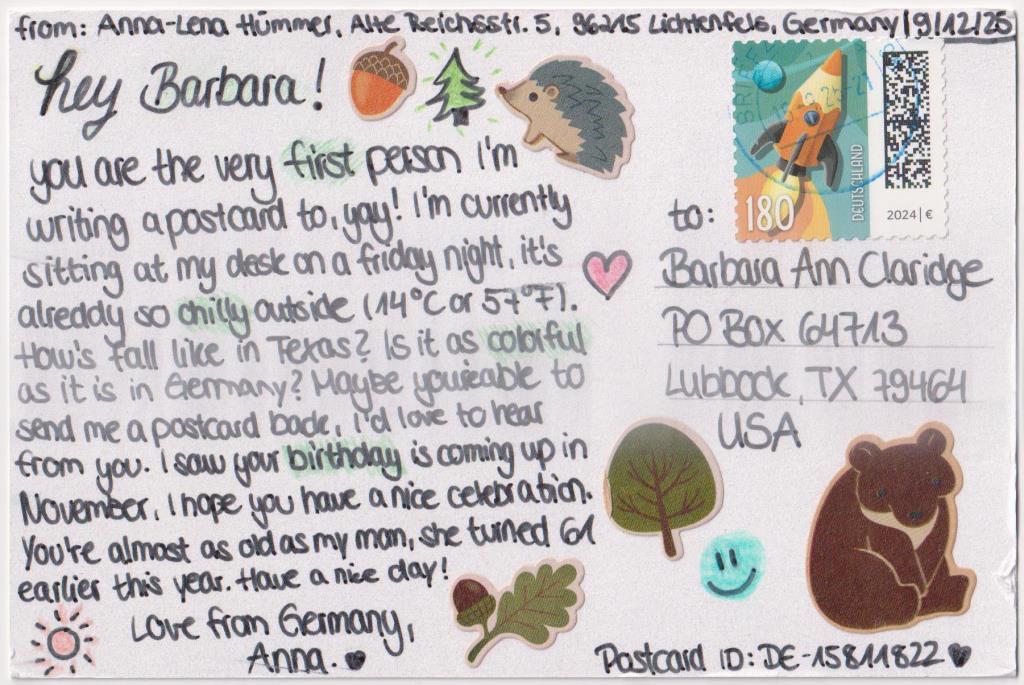 from: Anna-Lena Hümmer, Alte Reichsstr. 5, 96215 Lichtenfels, Germany | 9/12/25
hey Barbara!
you are the very first person I'm
writing a postcard to, yay! I'm currently
sitting at my desk on a friday night, it's
alreddy so chilly outside (14°C or 57°F).
How's fall like in Texas? Is it as colorful
as it is in Germany? Maybe you're able to
send me a postcard back, I'd love to hear
from you. I saw your birthday is coming up in
November, I hope you have a nice celebration.
You're almost as old as my mom, she turned 61
earlier this year. Have a nice day!
Love from Germany,
Anna. ♥
180
DEUTSCHLAND
2024 | €
to:
Barbara Ann Claridge
PO BOX 64713
Lubbock, TX 79464
USA
Postcard ID: DE-15811822 ♥